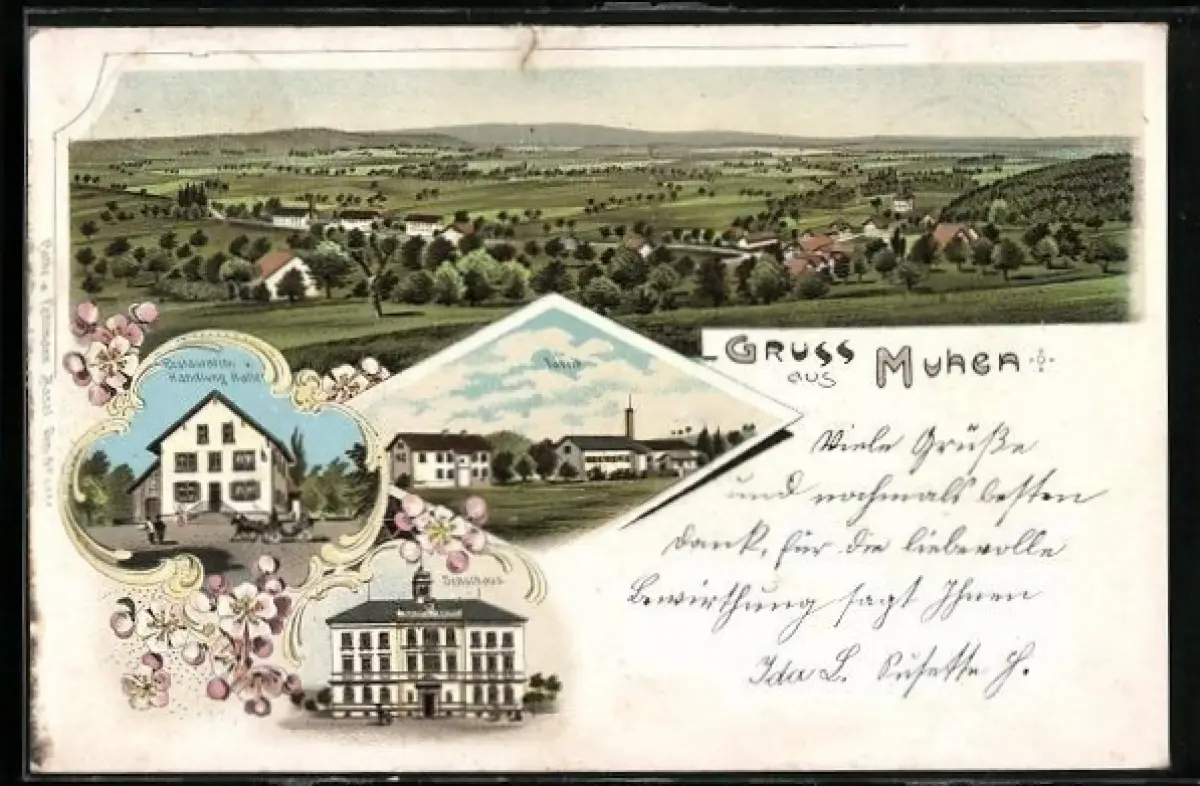 Restauration u.
Handlung Haller
Fabrik
Schulhaus
GRUSS
aus
MUHEN
Viele Grüße
und nochmals besten
Dank, für die liebevolle
Bewirthung sagt Ihnen
Ida L. Susette H.